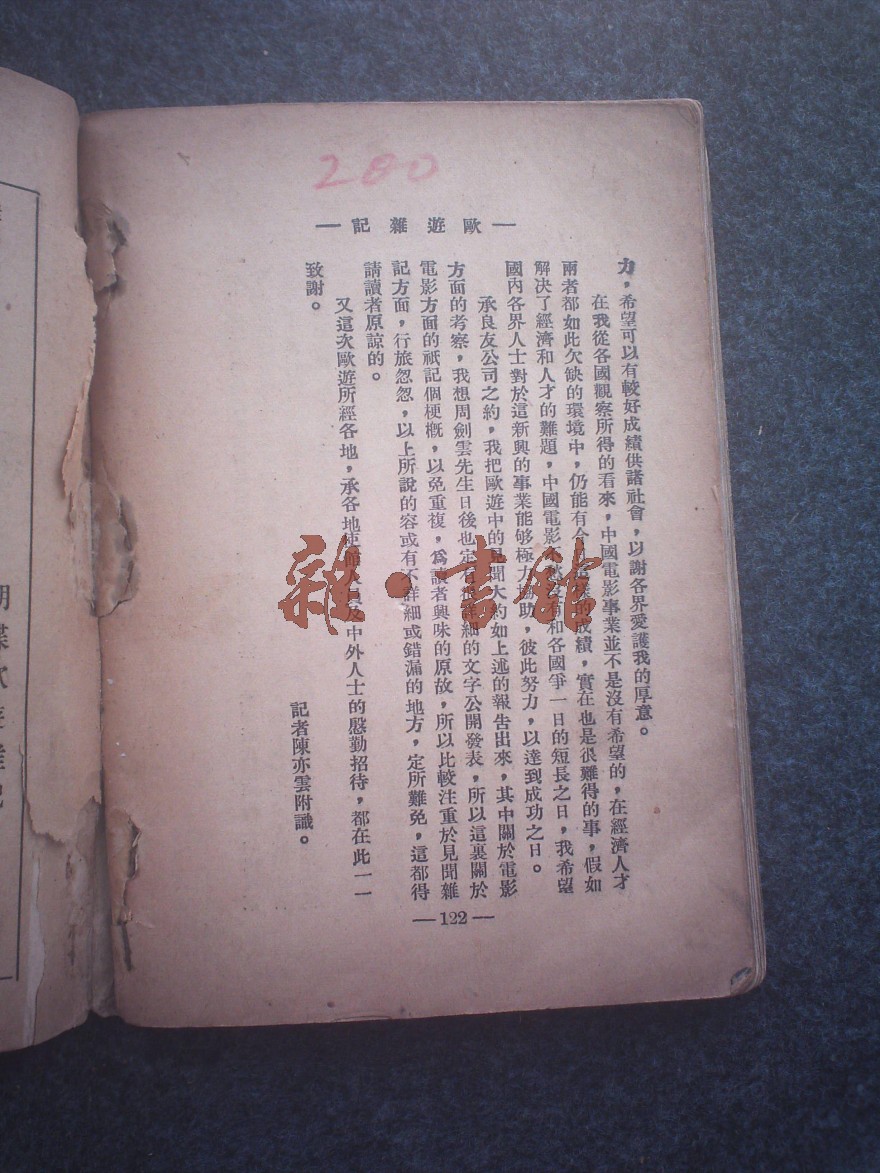 280
— 歐遊雜記 —
力，希望可以有較好成績供諸社會，以謝各界愛護我的厚意。
在我從各國觀察所得的看來，中國電影事業並不是沒有希望的，在經濟人才
兩者都如此欠缺的環境中，仍能有今日這樣的成績，實在也是很難得的事，假如
解決了經濟和人才的難題，中國電影不愁沒有和各國爭一日的短長之日，我希望
國內各界人士對於這新興的事業能够極力協助，彼此努力，以達到成功之日。
承良友公司之約，我把歐遊中的見聞大約如上述的報告出來，其中關於電影
方面的考察，我想周劍雲先生日後也定有很詳細的文字公開發表，所以這裏關於
電影方面的祇記個梗槪，以免重複，爲讀者興味的原故，所以比較注重於見聞雜
記方面，行旅忽忽，以上所說的容或有不詳細或錯漏的地方，定所難免，這都得
請讀者原諒的。
又這次歐遊所經各地，承各地使館人員及中外人士的慇勤招待，都在此一一
致謝。
記者陳亦雲附識。
— 122 —
雜·書館